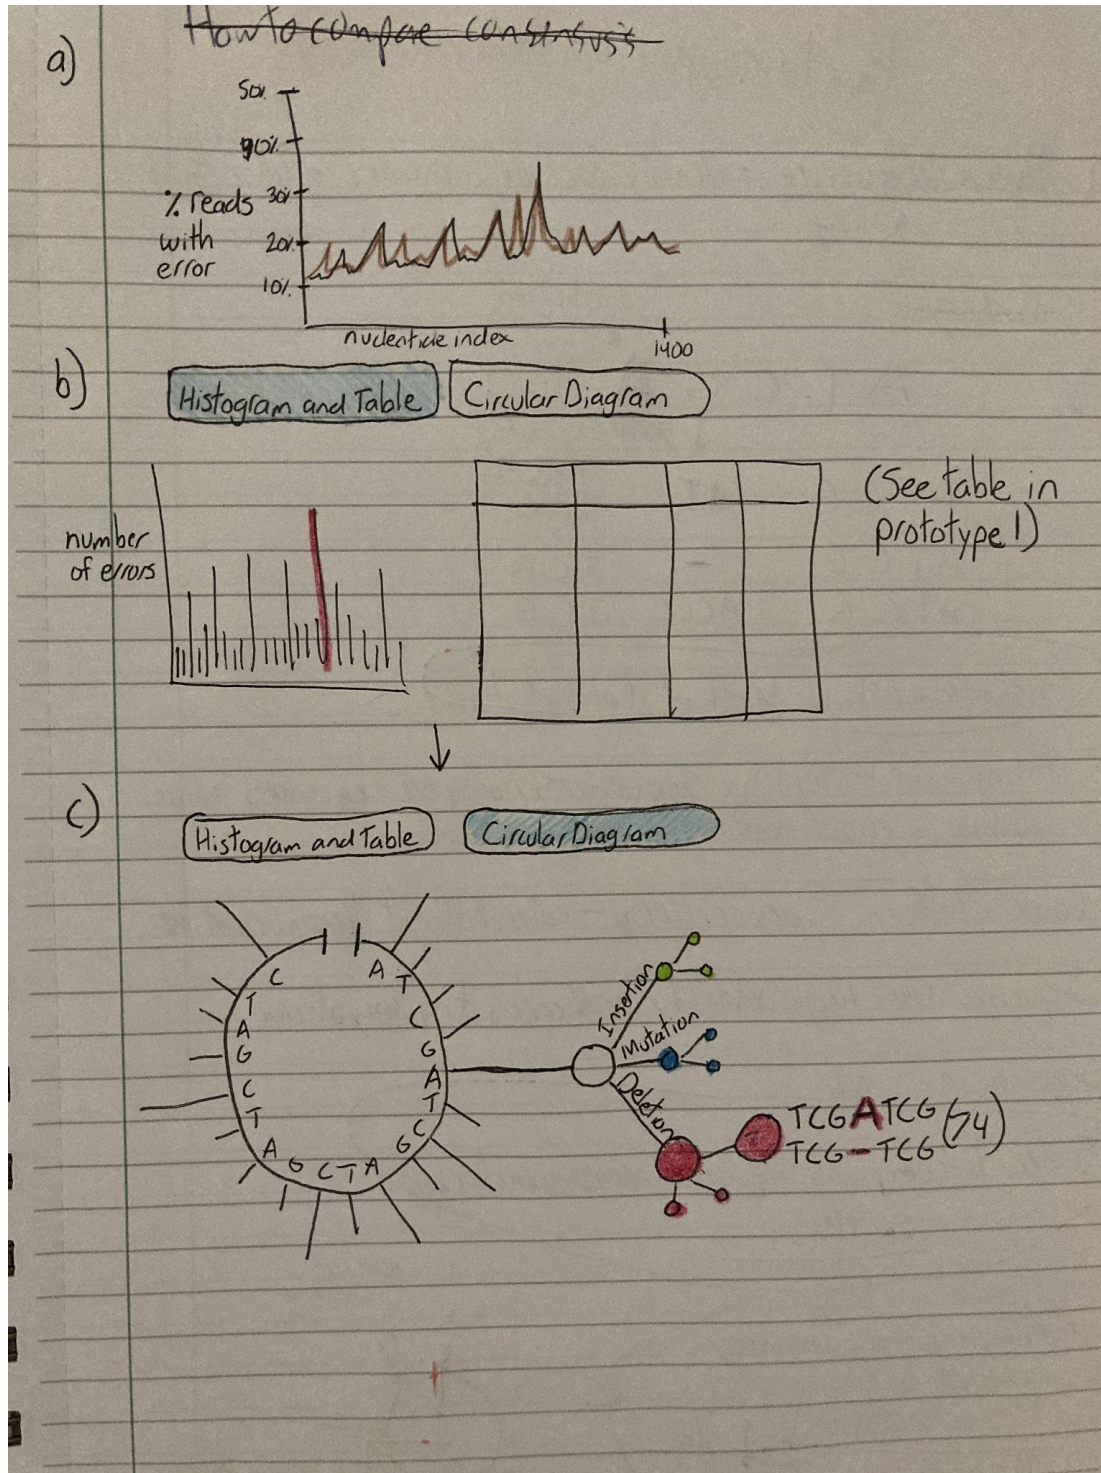 How to compae consensus's
a)
50%
90%
% reads 30%
with 20%
error
10%
nucleotide index
1400
b)
Histogram and Table Circular Diagram
number
of errors
(See table in
prototype 1)
c)
Histogram and Table Circular Diagram
C A
T T
A C
G G
C A
T T
A G C T A G C
Insertion
Mutation
Deletion
TCGATCG (74)
TCG-TCG